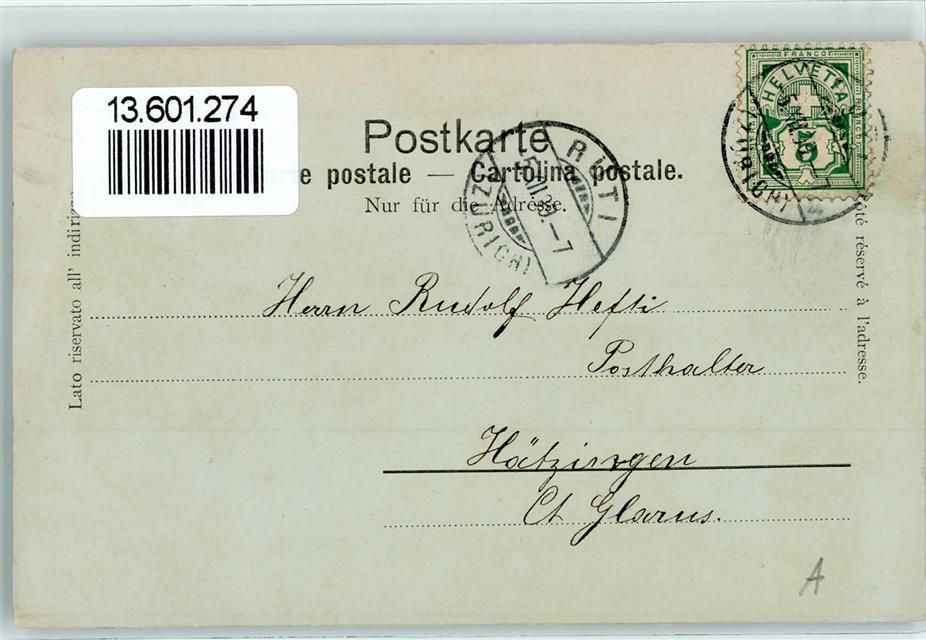 13.601.274
FRANCO
HELVETIA
5
Postkarte
te postale — Cartolina postale.
Nur für die Adresse.
RÜTI
(ZÜRICH)
Lato riservato all' indiri
ôté réservé à l'adresse.
Herrn Rudolf Hefti
Posthalter
Hätzingen
Ct. Glarus.
A